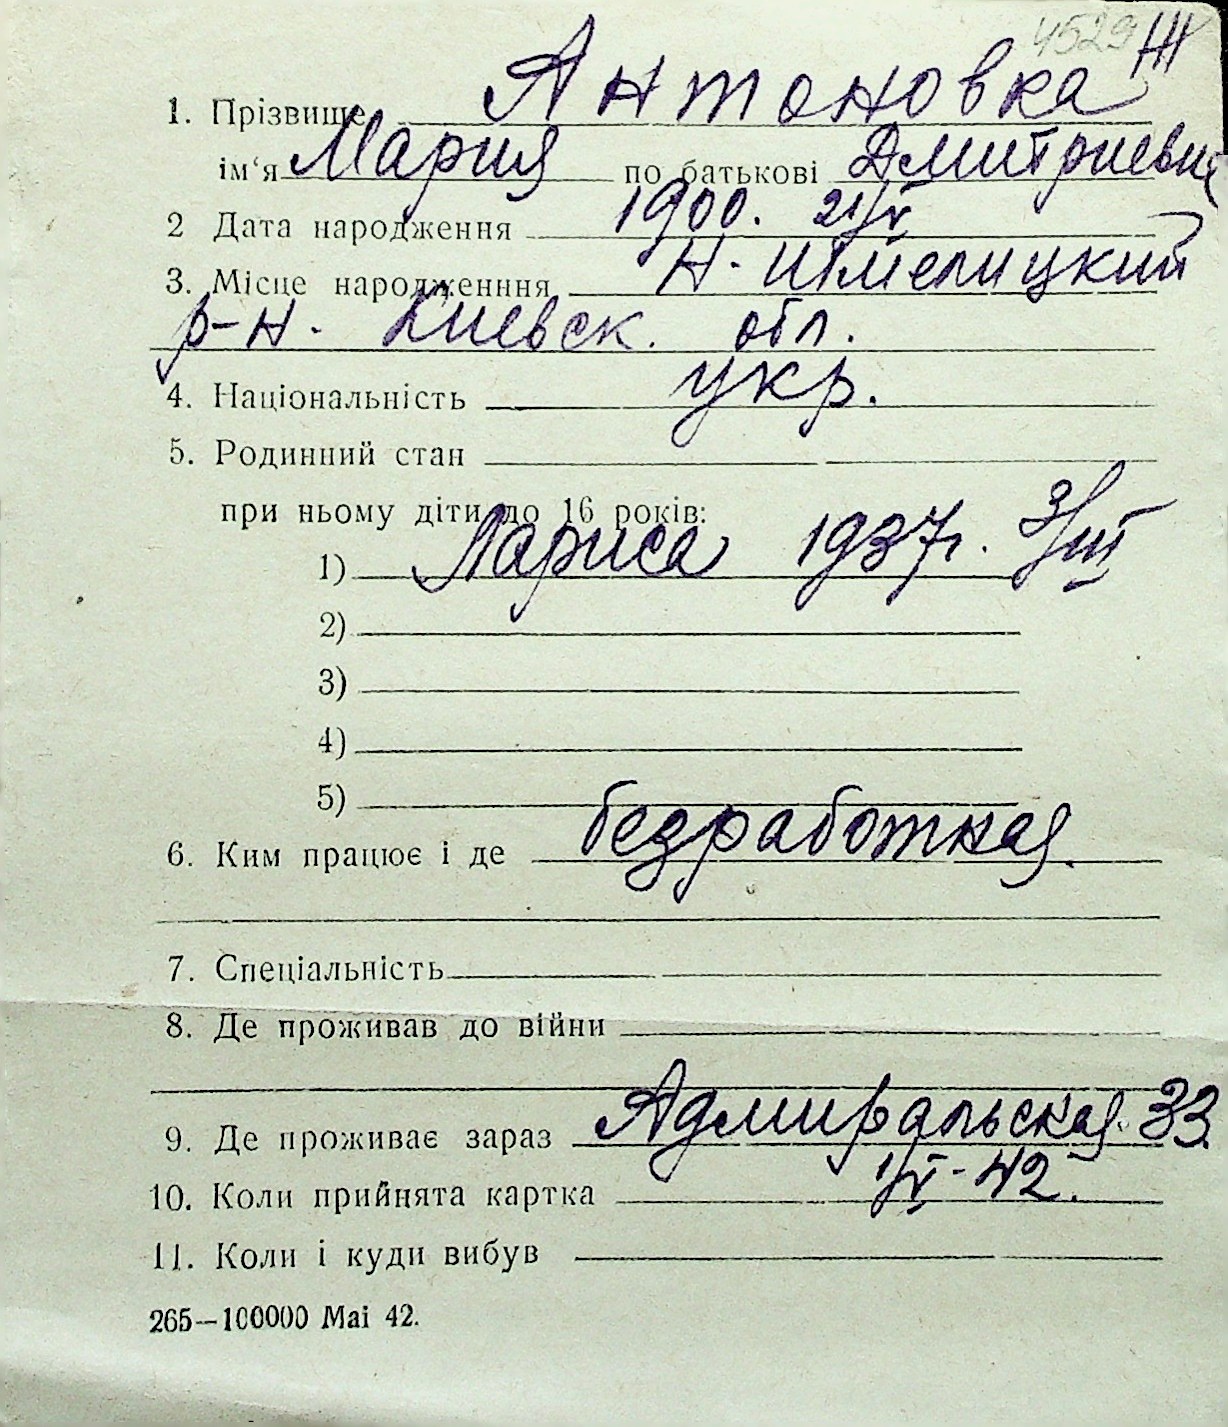 4529 Ж
1. Прізвище Антоновка
ім‘я Мария по батькові Дмитриевна
2 Дата народження 1900. 21/V
3. Місце народженння Н. Шмелицкий
р-н. Киевск. обл.
4. Національність укр.
5. Родинний стан
при ньому діти до 16 років:
1) Лариса 1937г. 3/III
2)
3)
4)
5)
6. Ким працює і де безработная.
7. Спеціальність
8. Де проживав до війни
9. Де проживає зараз Адмиральская 33.
10. Коли прийнята картка 1/VI-42.
11. Коли і куди вибув
265—100000 Mai 42.